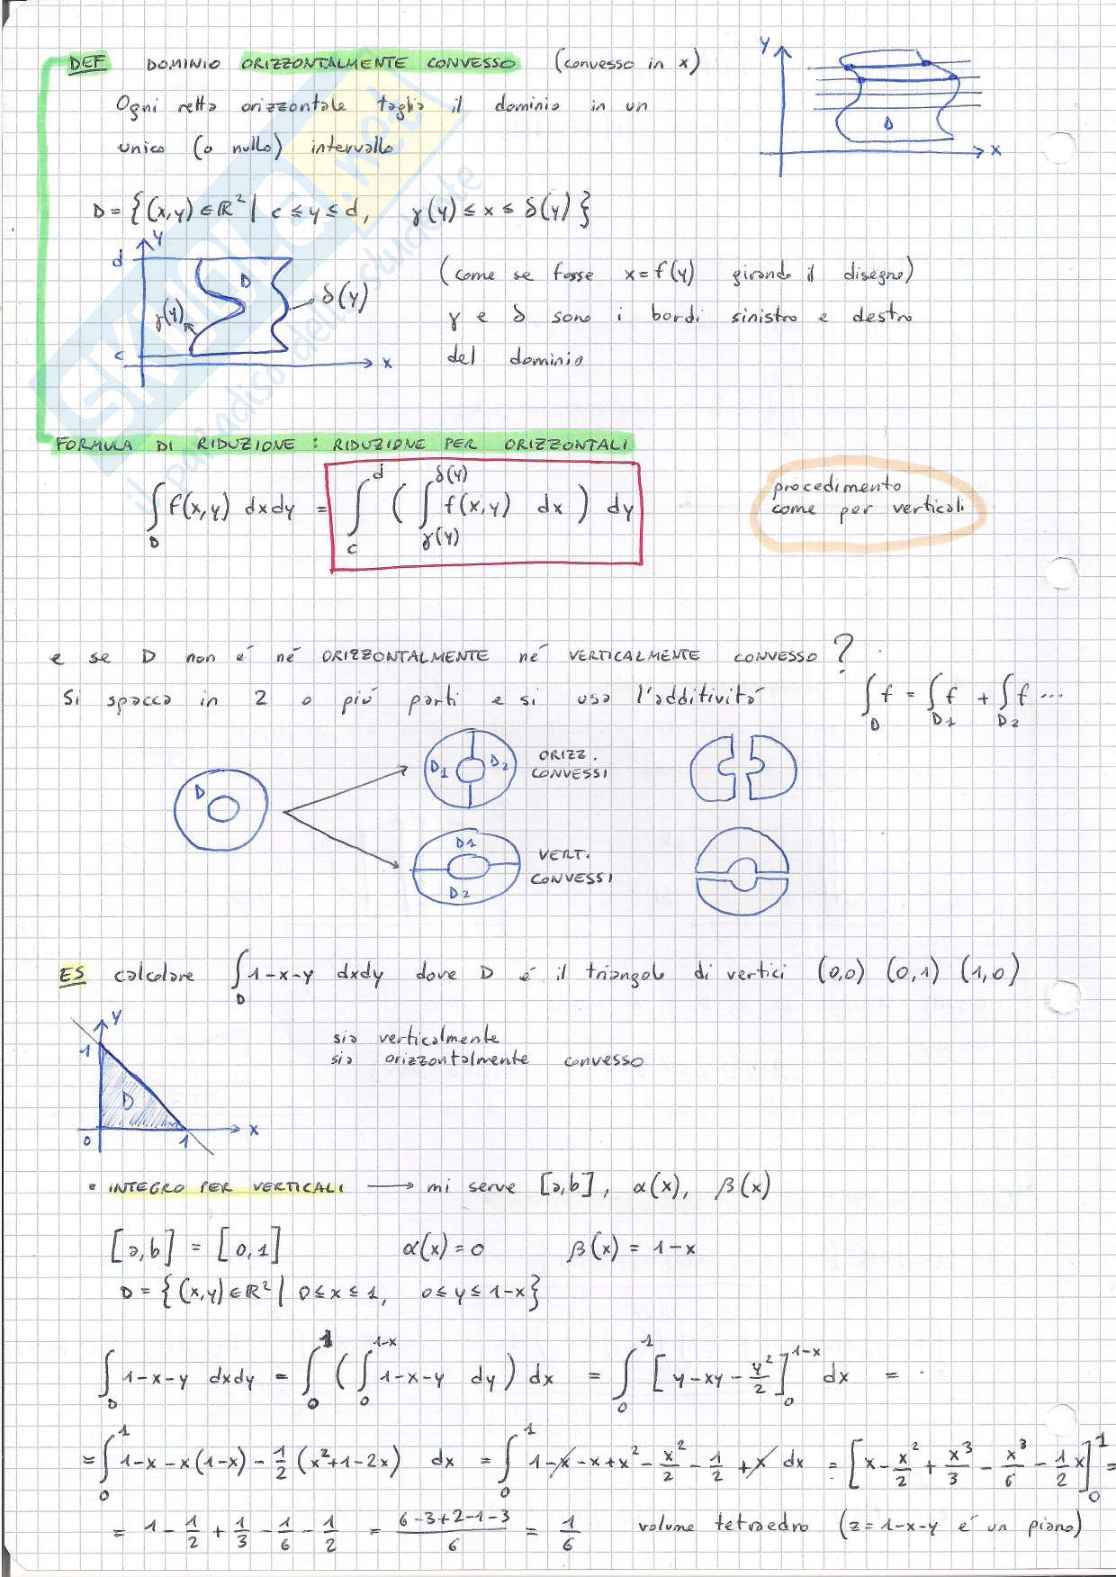 DEF DOMINIO ORIZZONTALMENTE CONVESSO (convesso in x)
Ogni retta orizzontale taglia il dominio in un
unico (o nullo) intervallo
y
D
x
D = {(x,y) ∈ ℝ² | c ≤ y ≤ d, γ(y) ≤ x ≤ δ(y)}
y
d
D
γ(y)
δ(y)
c
x
(come se fosse x = f(y) girando il disegno)
γ e δ sono i bordi sinistro e destro
del dominio
FORMULA DI RIDUZIONE : RIDUZIONE PER ORIZZONTALI
∫_D f(x,y) dxdy = ∫_c^d ( ∫_γ(y)^δ(y) f(x,y) dx ) dy
procedimento
come per verticali
e se D non é né ORIZZONTALMENTE né VERTICALMENTE CONVESSO ?
Si spacca in 2 o piú parti e si usa l'additivitá ∫_D f = ∫_D1 f + ∫_D2 f ...
D
D1 D2
ORIZZ.
CONVESSI
D1
D2
VERT.
CONVESSI
ES calcolare ∫_D 1-x-y dxdy dove D é il triangolo di vertici (0,0) (0,1) (1,0)
y
1
D
0
1
x
sia verticalmente
sia orizzontalmente convesso
• INTEGRO PER VERTICALI → mi serve [a,b], α(x), β(x)
[a,b] = [0,1] α(x) = 0 β(x) = 1-x
D = {(x,y) ∈ ℝ² | 0 ≤ x ≤ 1, 0 ≤ y ≤ 1-x}
∫_D 1-x-y dxdy = ∫_0^1 ( ∫_0^1-x 1-x-y dy ) dx = ∫_0^1 [y - xy - y²/2]_0^1-x dx =
= ∫_0^1 1-x-x(1-x) - 1/2 (x²+1-2x) dx = ∫_0^1 1-x-x+x² - x²/2 - 1/2 + x dx = [x - x²/2 + x³/3 - x³/6 - 1/2 x]_0^1 =
= 1 - 1/2 + 1/3 - 1/6 - 1/2 = 6-3+2-1-3/6 = 1/6 volume tetraedro (z = 1-x-y é un piano)
SKUOLA.net
il paradiso dello studente